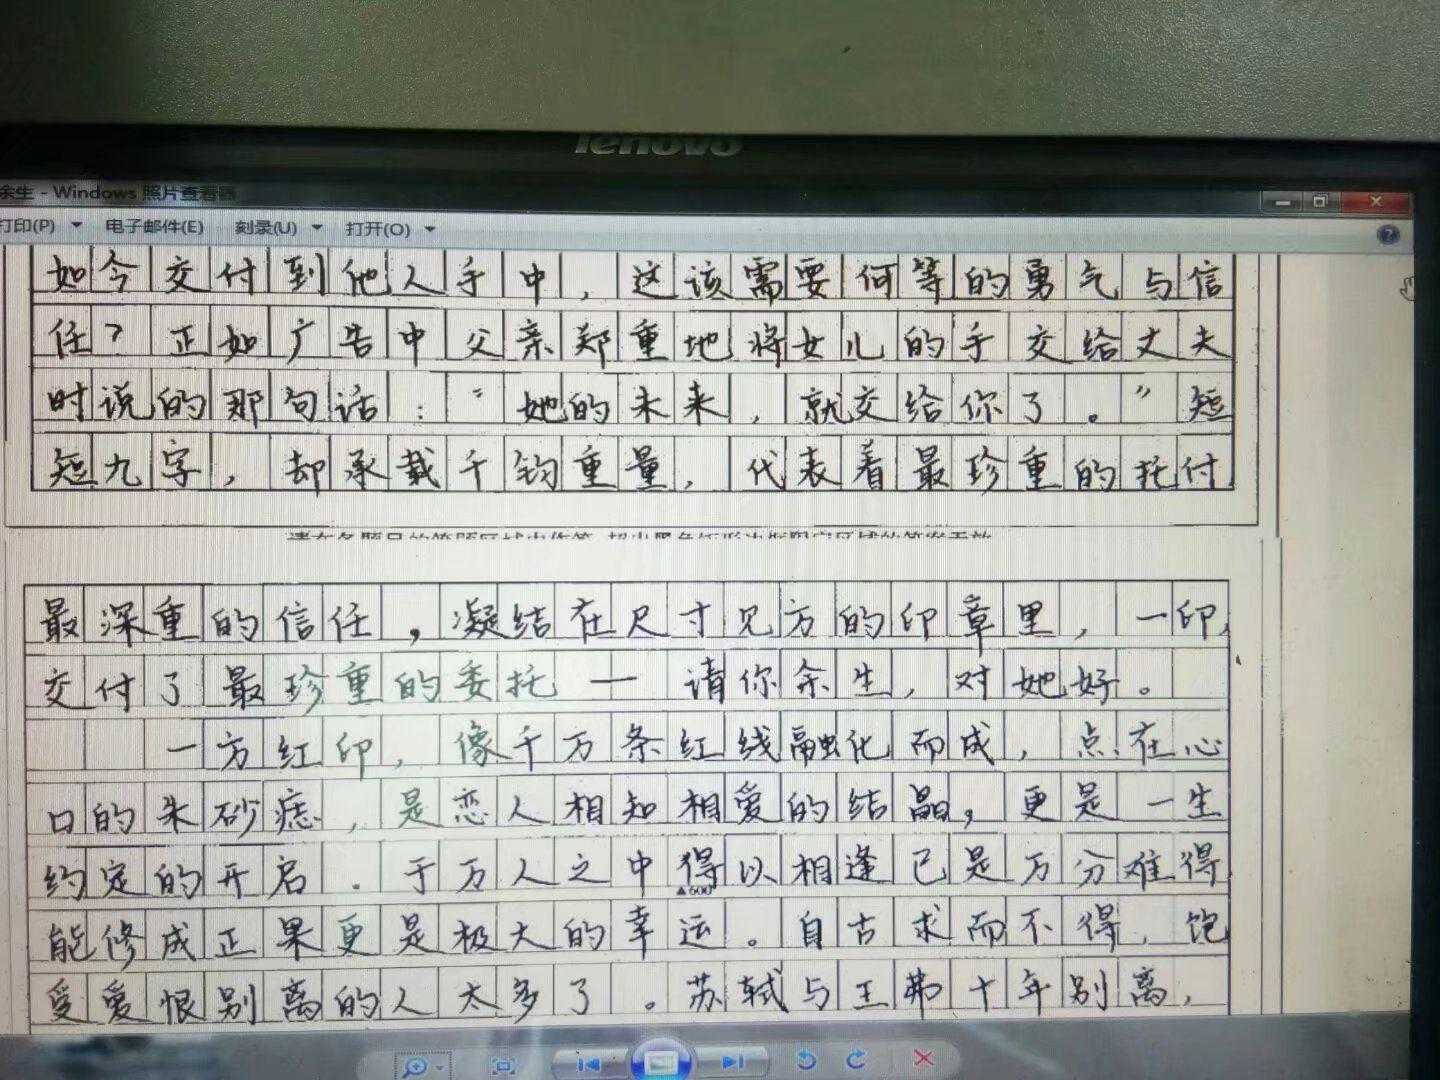 lenovo
余生 - Windows 照片查看器
打印(P) 电子邮件(E) 刻录(U) 打开(O)
如今交付到他人手中，这该需要何等的勇气与信
任？正如广告中父亲郑重地将女儿的手交给丈夫
时说的那句话：“她的未来，就交给你了。”短
短九字，却承载千钧重量，代表着最珍重的托付
请在各题目的答题区域内作答，超出黑色矩形边框限定区域的答案无效
最深重的信任，凝结在尺寸见方的印章里，一印，
交付了最珍重的委托一请你余生，对她好。
一方红印，像千万条红线融化而成，点在心
口的朱砂痣，是恋人相知相爱的结晶，更是一生
约定的开启．于万人之中得以相逢已是万分难得
▲600
能修成正果更是极大的幸运。自古求而不得，饱
受爱恨别离的人太多了。苏轼与王弗十年别离，